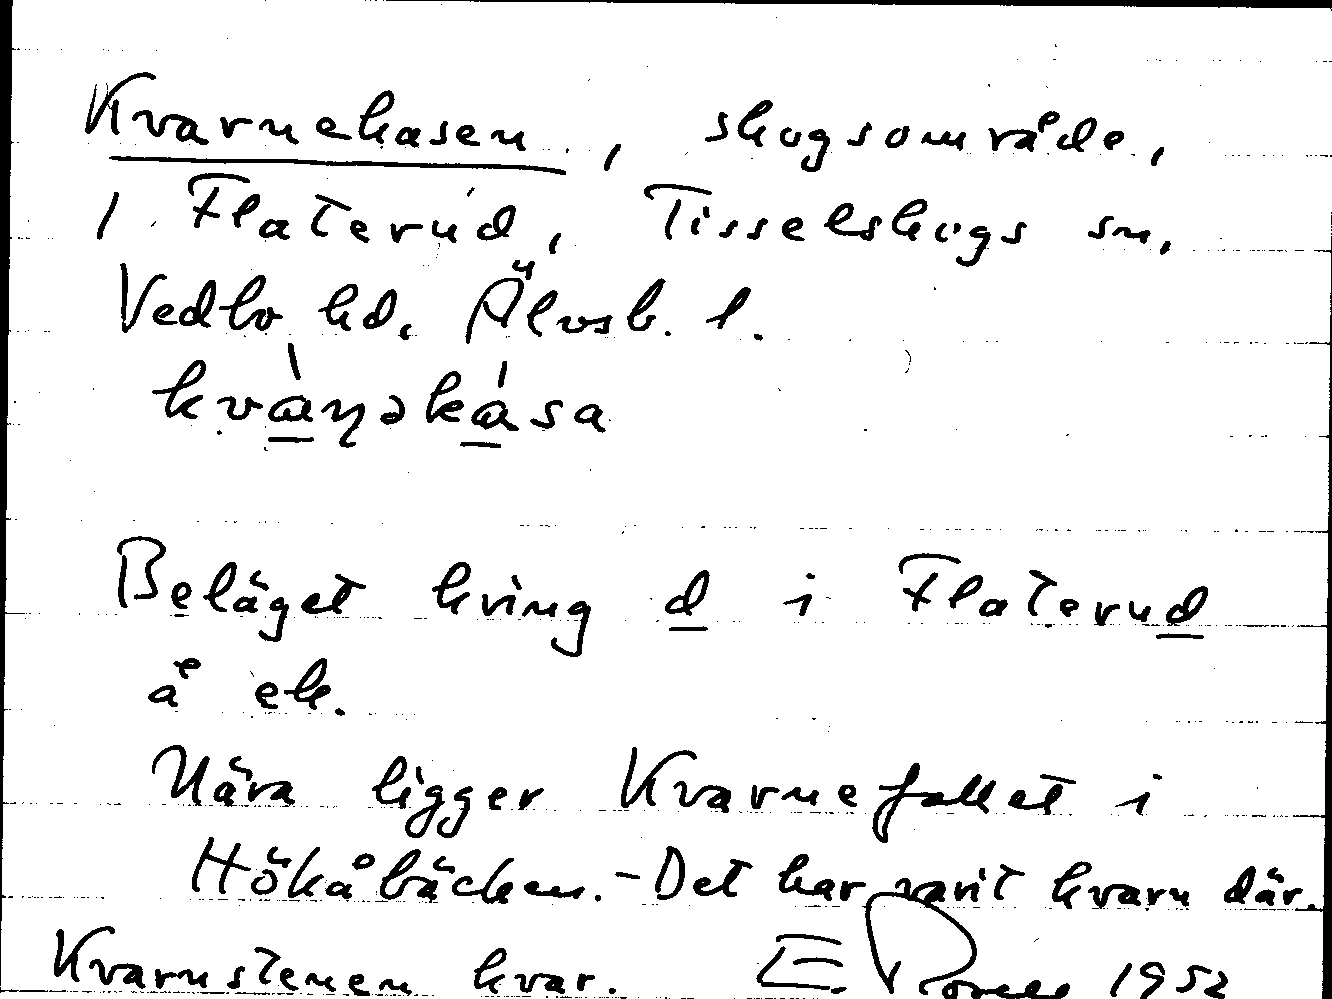 Kvarnekasen, skogsområde,
i Flaterud, Tisselskogs sn,
Vedbo hd, Älvsb. l.
kvàṇəkása
Beläget kring d i Flaterud
å ek.
Nära ligger Kvarnefallet i
Hökåbäcken. - Det har varit kvarn där.
Kvarnstenen kvar. E. 1952